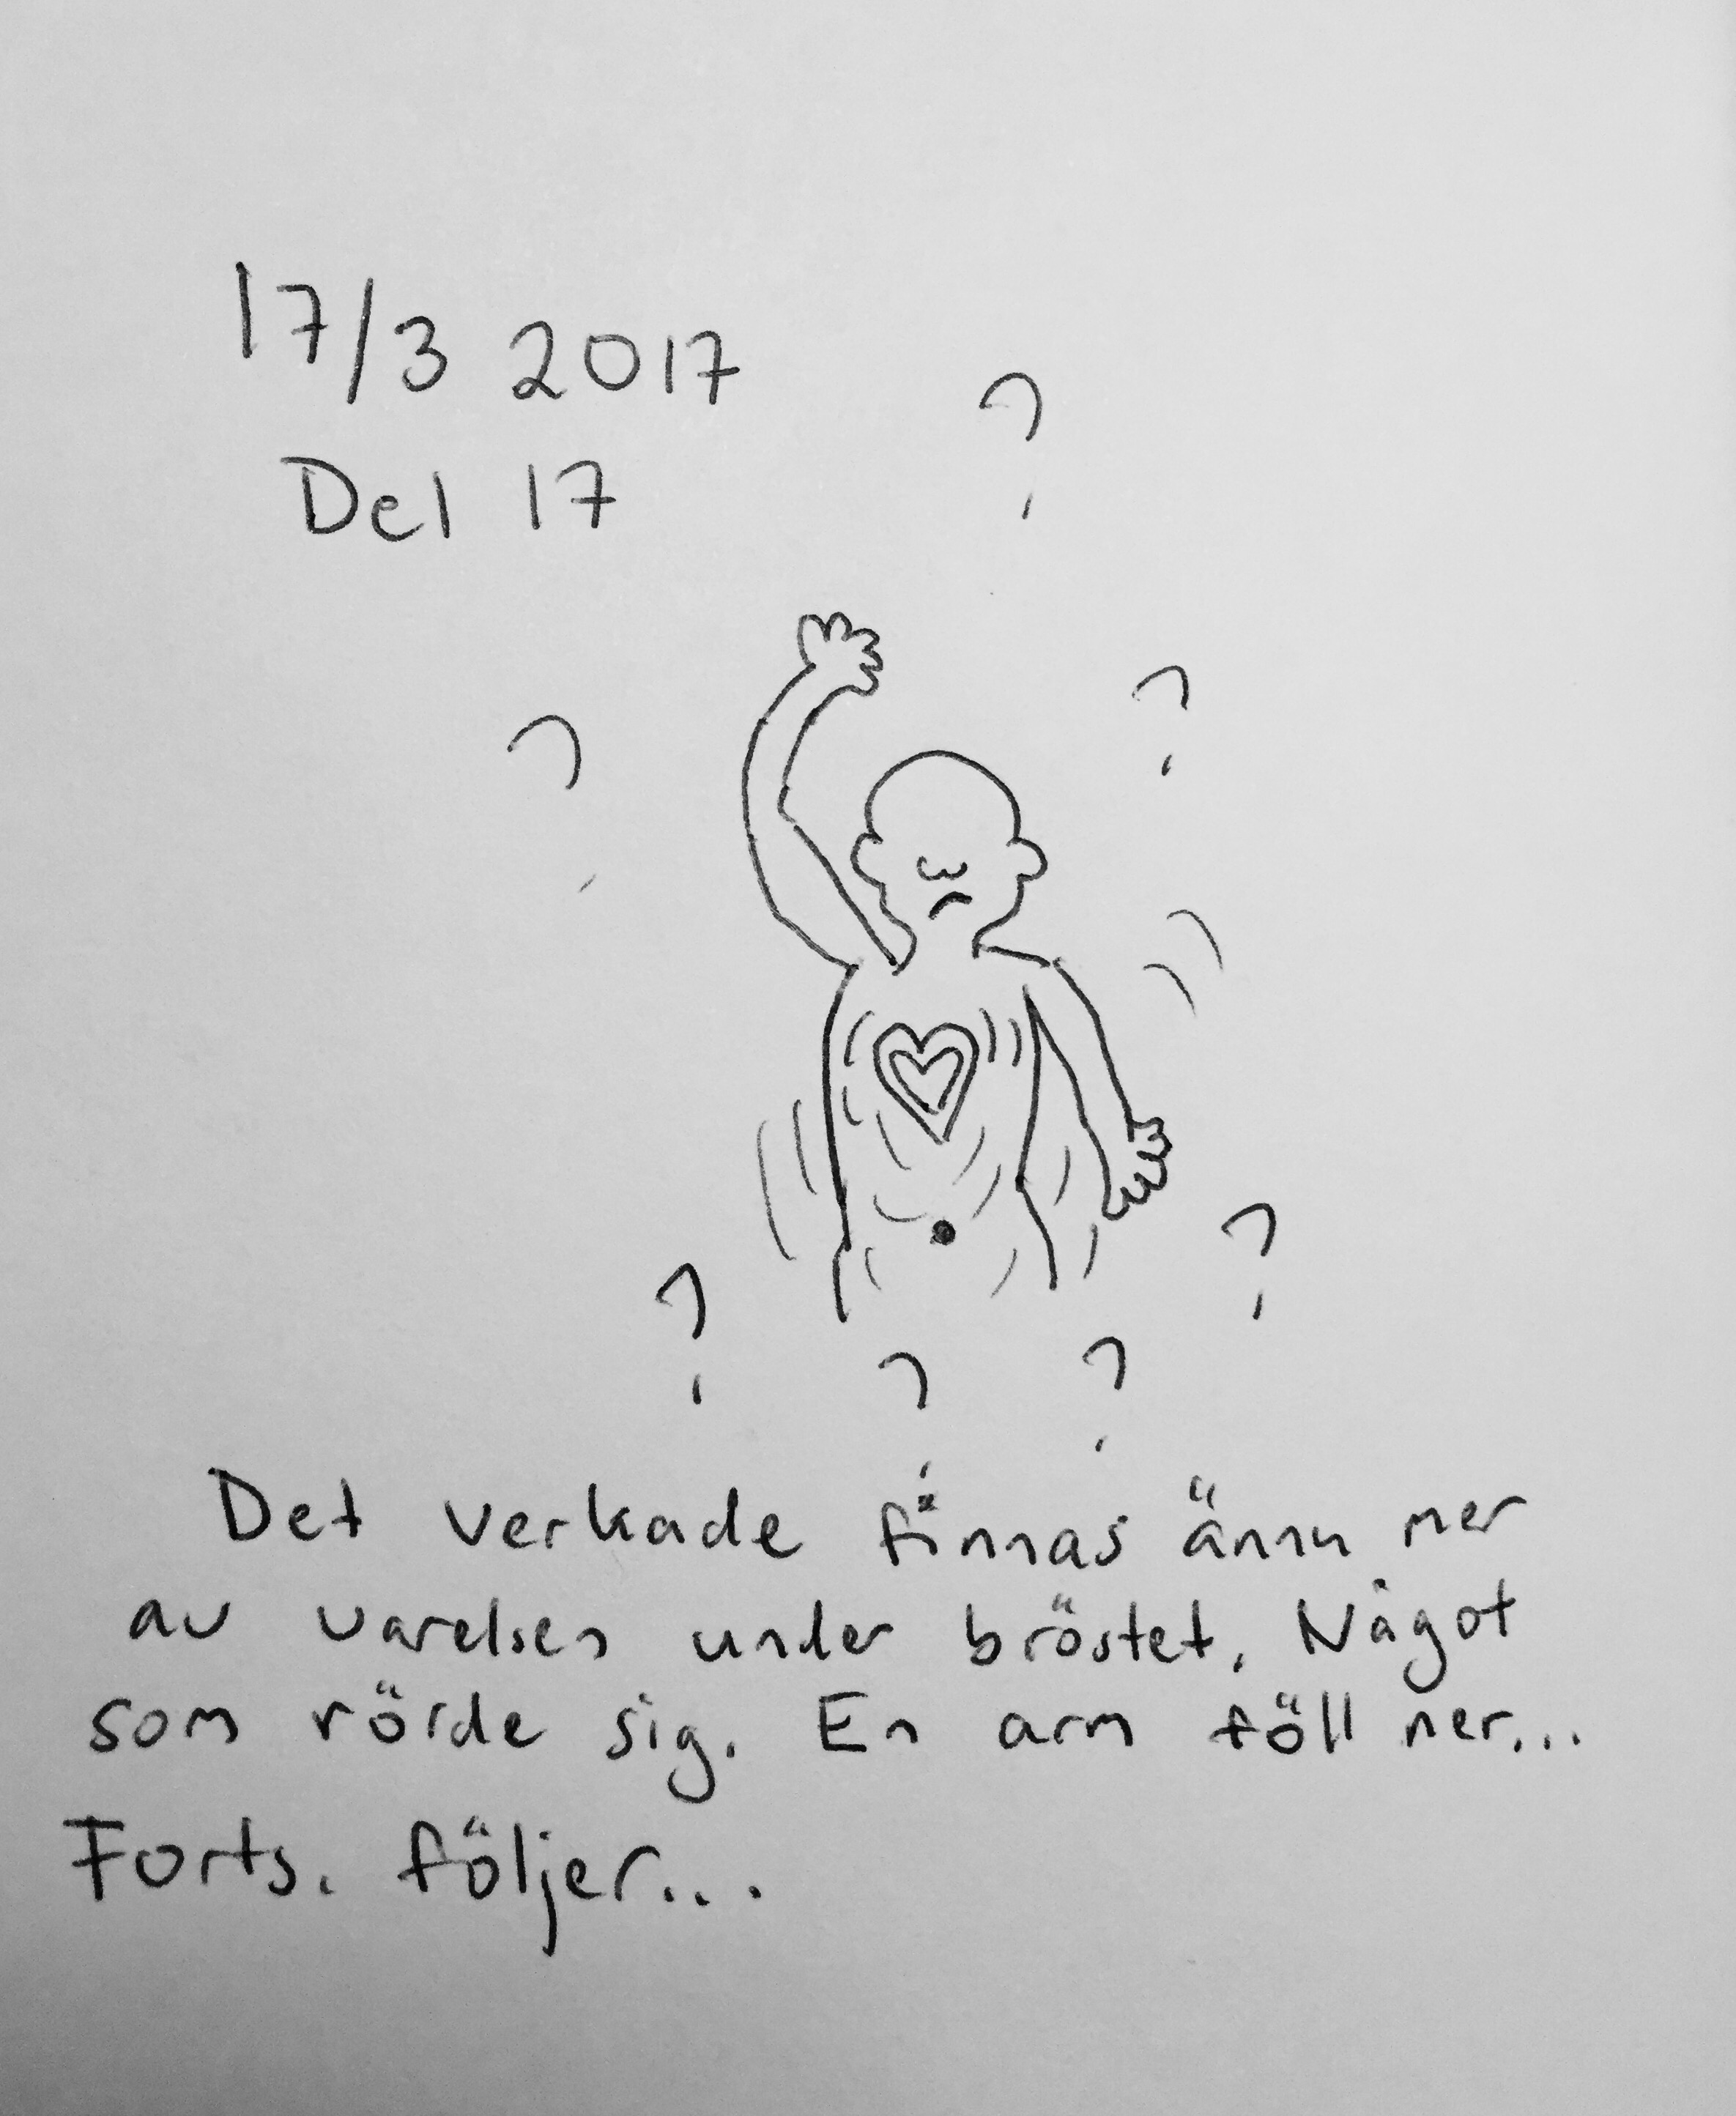 17/3 2017
Del 17
?
?
?
?
?
?
?
Det verkade finnas ännu mer
av varelsen under bröstet. Något
som rörde sig. En arm föll ner...
Forts. följer...